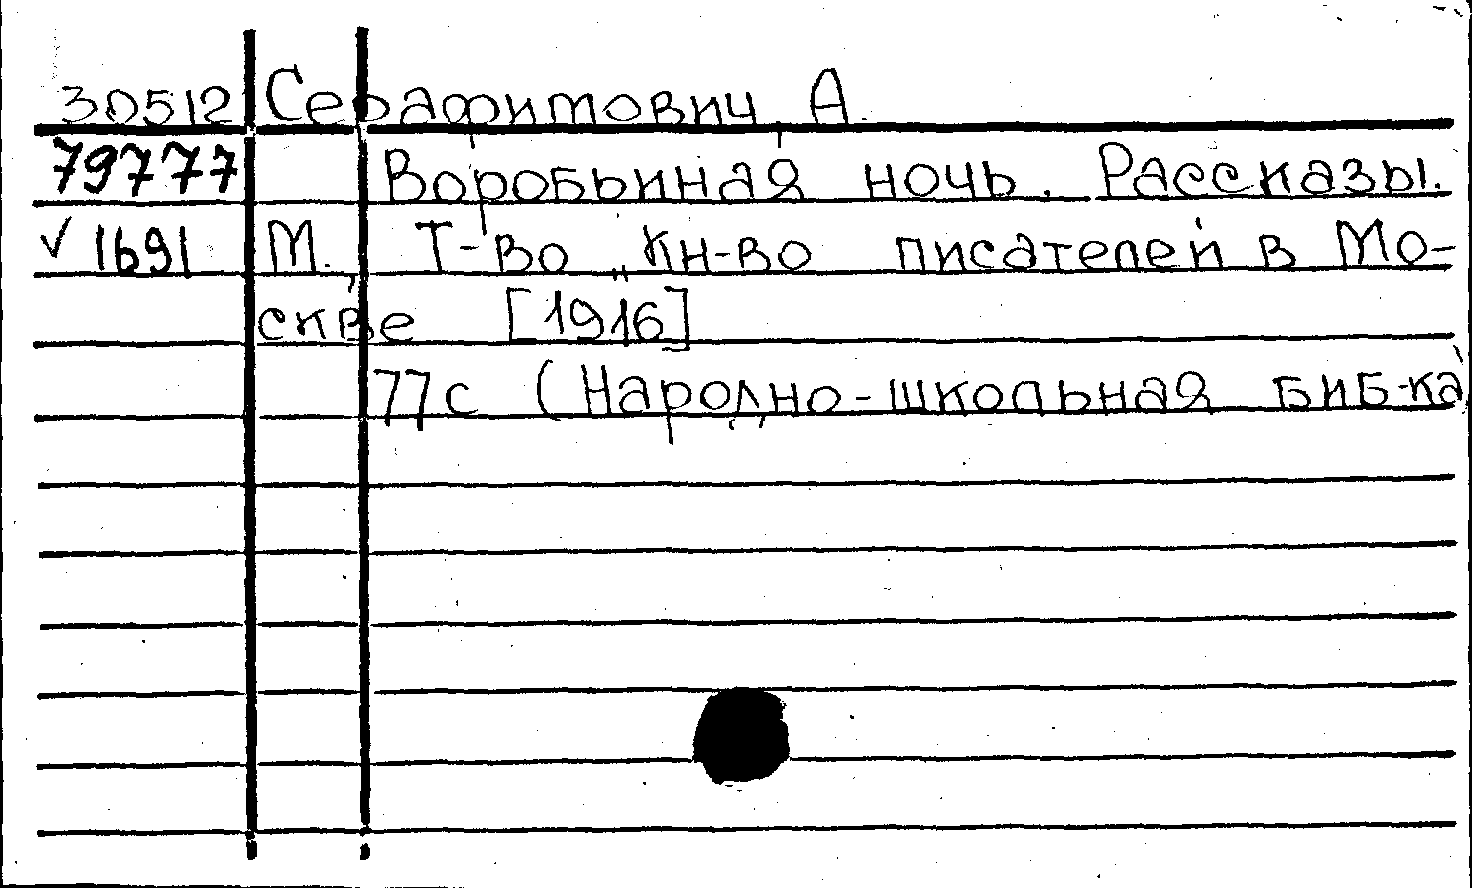 30512 Серафимович, А.
79777 Воробьиная ночь. Рассказы.
√ 1691 М., Т-во „Кн-во писателей в Мо-
скве [1916]
77с (Народно-школьная биб-ка)